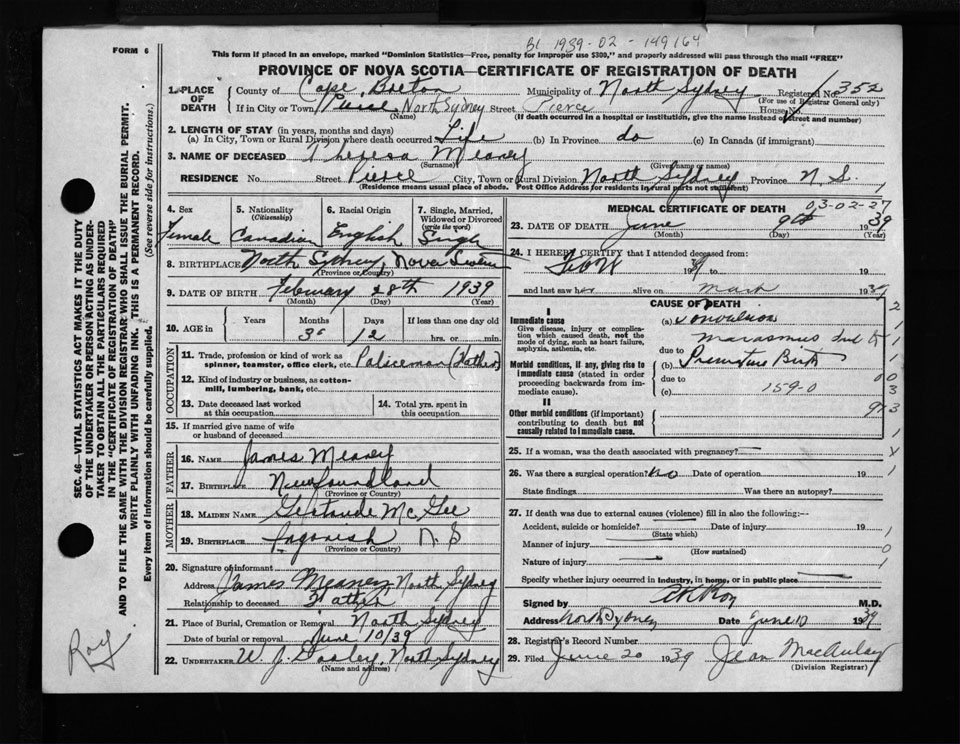 B1 1939-02-149164
FORM 6
This form if placed in an envelope, marked "Dominion Statistics—Free, penalty for improper use $300," and properly addressed will pass through the mail "FREE"
PROVINCE OF NOVA SCOTIA—CERTIFICATE OF REGISTRATION OF DEATH
1. PLACE OF DEATH
County of Cape Breton Municipality of North Sydney Registered No. 352
(For use of Registrar General only)
If in City or Town North Sydney Street Pierce House No.
(Name) (If death occurred in a hospital or institution, give the name instead of street and number)
2. LENGTH OF STAY (in years, months and days)
(a) In City, Town or Rural Division where death occurred Life (b) In Province do (c) In Canada (if immigrant)
3. NAME OF DECEASED Theresa Meaney
(Surname) (Given name or names)
RESIDENCE No. Street Pierce City, Town or Rural Division North Sydney Province N. S.
(Residence means usual place of abode. Post Office Address for residents in rural parts not sufficient)
4. Sex Female
5. Nationality (Citizenship) Canadian
6. Racial Origin English
7. Single, Married, Widowed or Divorced (write the word) Single
8. BIRTHPLACE North Sydney, Nova Scotia
(Province or Country)
9. DATE OF BIRTH February 28th 1939
(Month) (Day) (Year)
10. AGE in Years Months 3 Days 12 If less than one day old
hrs. or min.
OCCUPATION
11. Trade, profession or kind of work as spinner, teamster, office clerk, etc. Policeman (Father)
12. Kind of industry or business, as cotton-mill, lumbering, bank, etc.
13. Date deceased last worked at this occupation
14. Total yrs. spent in this occupation
15. If married give name of wife or husband of deceased
FATHER
16. NAME James Meaney
17. BIRTHPLACE Newfoundland
(Province or Country)
MOTHER
18. MAIDEN NAME Gertrude McGee
19. BIRTHPLACE Ingonish N. S
(Province or Country)
20. Signature of informant James Meaney
Address North Sydney
Relationship to deceased Father
21. Place of Burial, Cremation or Removal North Sydney
Date of burial or removal June 10/39
22. UNDERTAKER W. J. Dooley, North Sydney
(Name and address)
MEDICAL CERTIFICATE OF DEATH
03-02-27
23. DATE OF DEATH June 9th 1939
(Month) (Day) (Year)
24. I HEREBY CERTIFY that I attended deceased from:
19 to 19
and last saw her alive on 19
CAUSE OF DEATH
I
Immediate cause
Give disease, injury or complication which caused death, not the mode of dying, such as heart failure, asphyxia, asthenia, etc.
(a) Convulsion
Marasmus
due to
Morbid conditions, if any, giving rise to immediate cause (stated in order proceeding backwards from immediate cause).
(b) Premature Birth
due to
(c) 159-0
II
Other morbid conditions (if important) contributing to death but not causally related to immediate cause.
25. If a woman, was the death associated with pregnancy?
26. Was there a surgical operation? No Date of operation 19
State findings Was there an autopsy?
27. If death was due to external causes (violence) fill in also the following:—
Accident, suicide or homicide? Date of injury 19
(State which)
Manner of injury
(How sustained)
Nature of injury
Specify whether injury occurred in industry, in home, or in public place
Signed by M.D.
Address North Sydney Date June 10 1939
28. Registrar's Record Number
29. Filed June 20 1939 Jean MacAulay
(Division Registrar)
SEC. 46—VITAL STATISTICS ACT MAKES IT THE DUTY
OF THE UNDERTAKER OR PERSON ACTING AS UNDER-
TAKER TO OBTAIN ALL THE PARTICULARS REQUIRED
IN THE "CERTIFICATE OF REGISTRATION OF DEATH"
AND TO FILE THE SAME WITH THE DIVISION REGISTRAR WHO SHALL ISSUE THE BURIAL PERMIT.
WRITE PLAINLY WITH UNFADING INK. THIS IS A PERMANENT RECORD.
Every item of information should be carefully supplied. (See reverse side for instructions.)
Roy